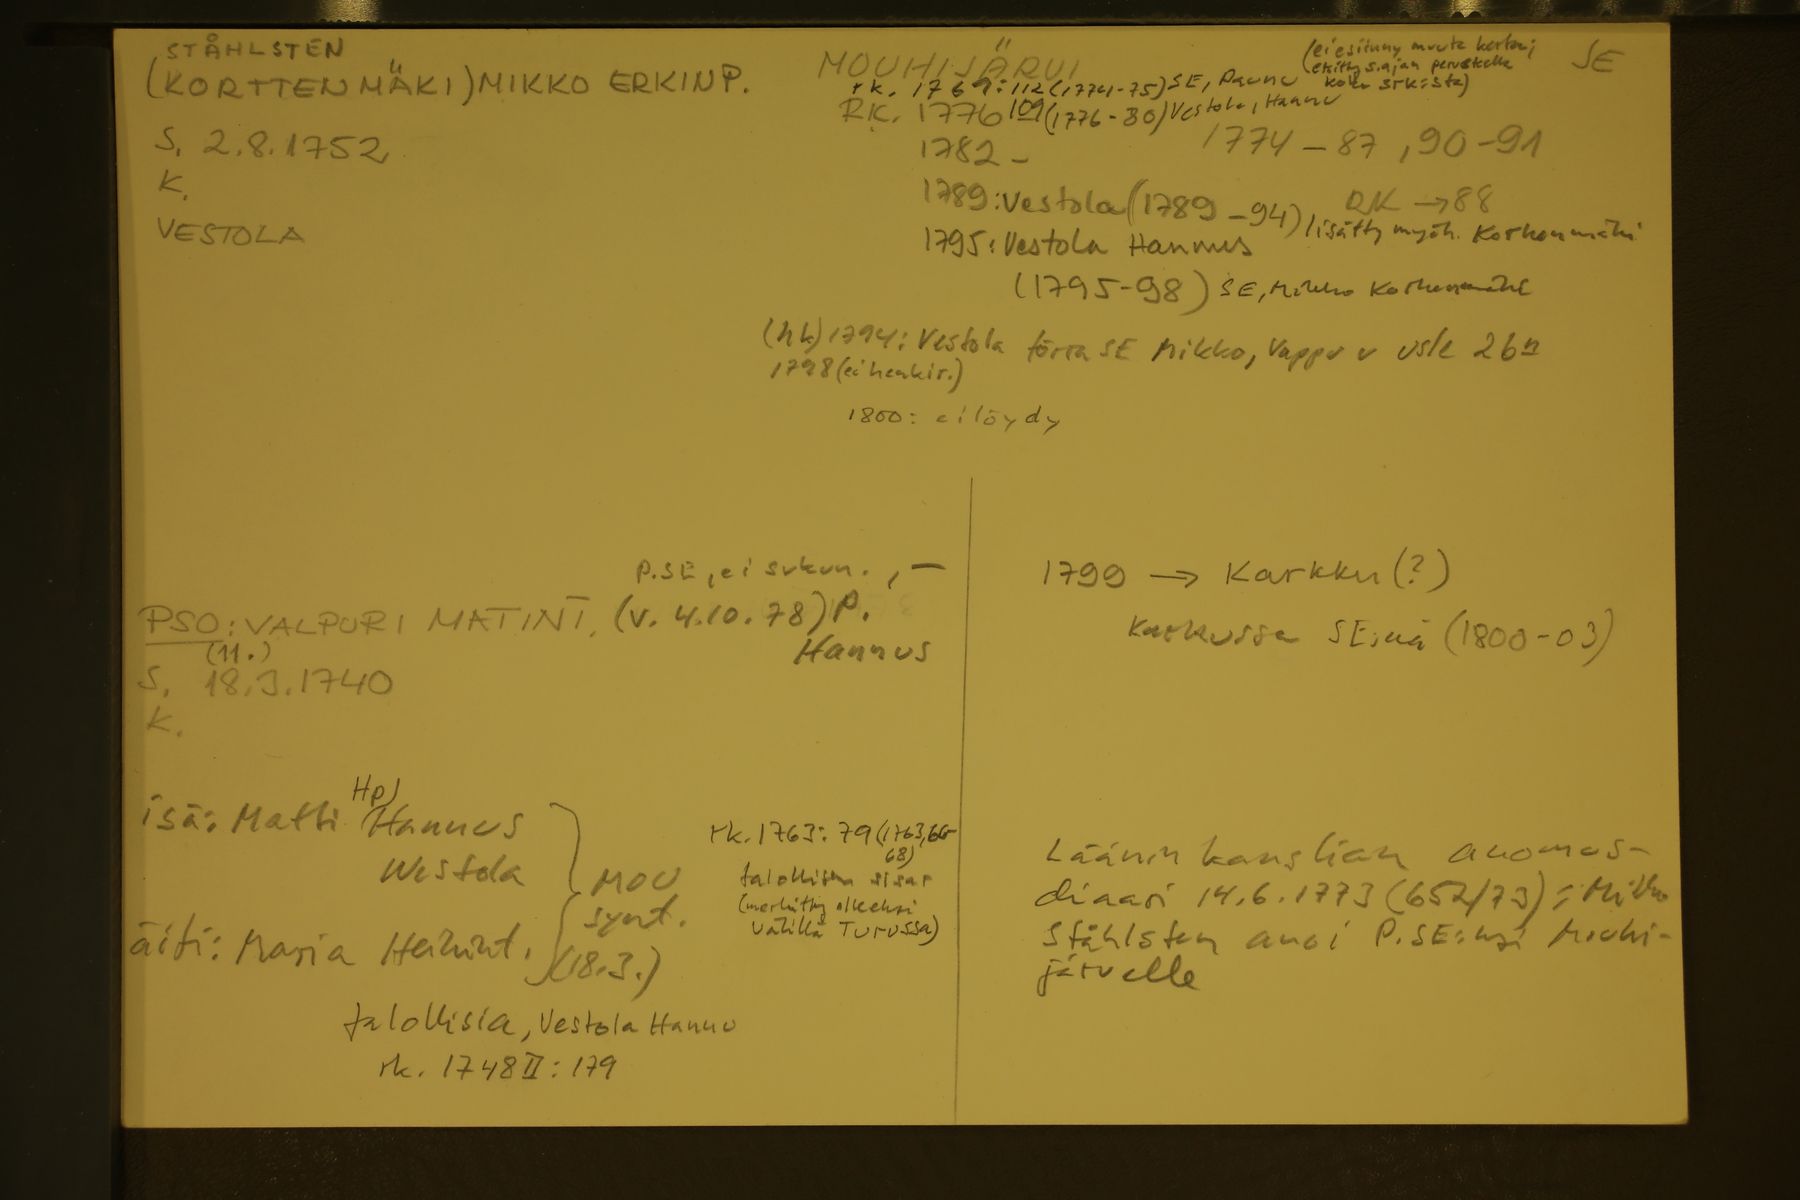 STÅHLSTEN
(KORTTENMÄKI) MIKKO ERKINP.
S. 2.8.1752
K.
VESTOLA
MOUHIJÄRVI
(ei esiinny muuta kertaa;
etsitty s.ajan perusteella
koko srk:sta)
SE
rk. 1769:112 (1774-75) SE, Paunu
RK. 1776 109 (1776-80) Vestola, Hannu
1782 -
1774 - 87, 90-91
1789: Vestola (1789 - 94) lisätty myöh. Korkenmäki
RK → 88
1795: Vestola Hannus
(1795-98) SE, Mikko Korkenmäki
(hk) 1794: Vestola SE Mikko, Vappu v
1798 (ei henkir.)
1800: ei löydy
P.SE, ei sukun., —
PSO: VALPURI MATINT. (v. 4.10.78) P.
Hannus
(11.)
S. 18.3.1740
K.
1799 → Karkku (?)
Karkussa SE:nä (1800-03)
Hpl
isä: Matti Hannus
Westola
äiti: Maria Heikint.
MOU
synt.
(18.3.)
rk. 1763: 79 (1763, 66-
68)
talollisen sisar
(merkitty olleeksi
välillä Turussa)
talollisia, Vestola Hannu
rk. 1748 II: 179
Läänin kanslian anomus-
diaari 14.6.1773 (652/73): Mikko
Ståhlsten anoi P.SE:ksi Mouhi-
järvelle